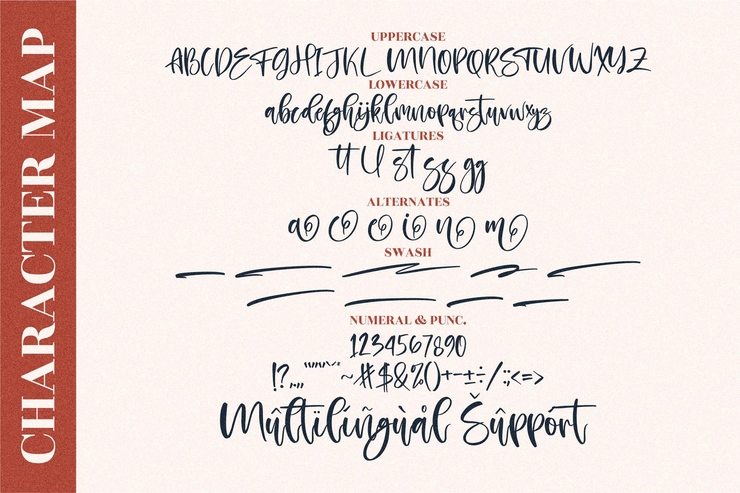 CHARACTER MAP
UPPERCASE
ABCDEFGHIJKL MNOPQRSTUVWXYZ
LOWERCASE
abcdefghijklmnopqrstuvwxyz
LIGATURES
tt ll st ss gg
ALTERNATES
a c e i n m
SWASH
NUMERAL & PUNC.
1234567890
~#$&%()+-±÷/:;<=>
Mûltïlíñgùål Šûppórt